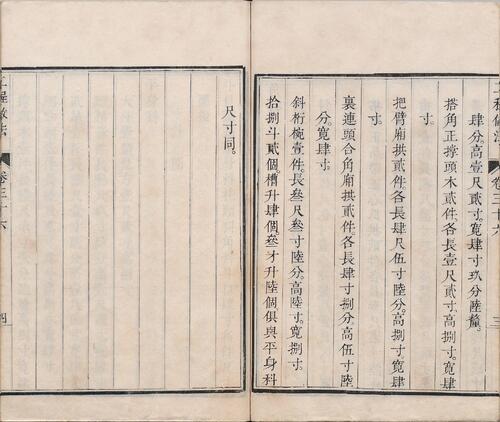 肆分。高壹尺貳寸。寬肆寸玖分陸釐。
搭角正撐頭木貳件。各長壹尺貳寸。高捌寸。寬肆
寸。
把臂廂拱貳件。各長肆尺伍寸陸分。高捌寸。寬肆
寸。
裏連頭合角廂拱貳件。各長肆寸捌分。高伍寸陸
分。寬肆寸。
斜桁椀壹件。長叄尺叄寸陸分。高陸寸。寬捌寸。
拾捌斗貳個。槽升肆個。叄才升陸個俱與平身科
工程做法
卷三十六
三
尺寸同。
工程做法
卷三十六
四